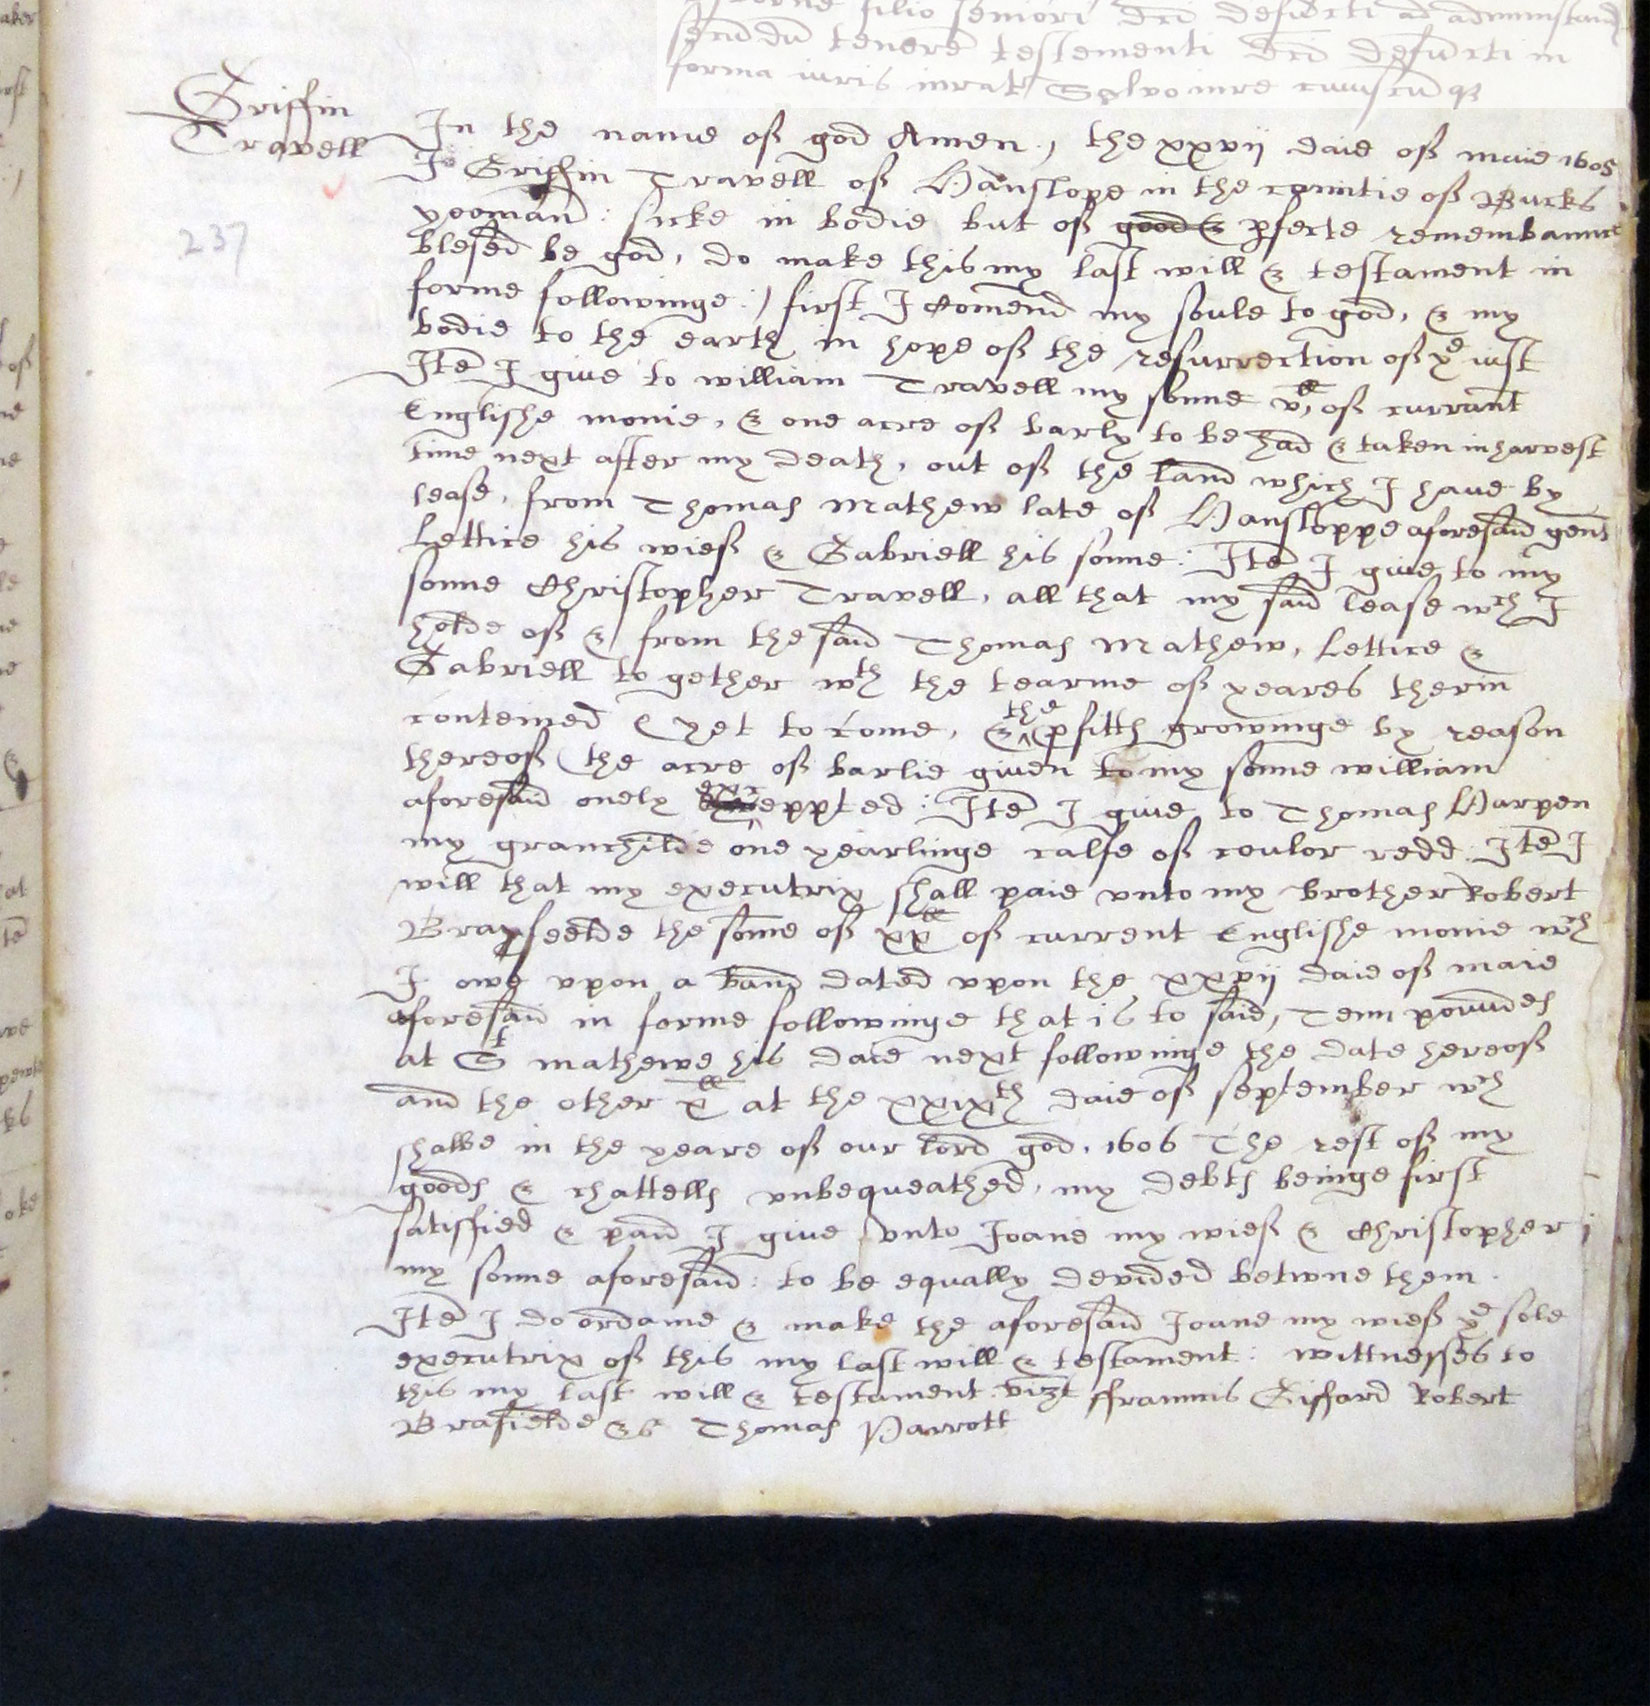 filio seniori dci defuncti ad administrand
secundu tenore testementi dci defuncti in
forma iuris iurat Salvo iure cuiuscuq
Griffin
Travell
237
In the name of god Amen, the xxvij daie of maie 1605
I Griffin Travell of Hanslope in the countie of Bucks
yeoman: sicke in bodie but of good & pfecte remembannce
blesed be god, do make this my last will & testament in
forme followinge:/ first I Comend my soule to god, & my
bodie to the earth in hope of the resurrection of ye iust
Ite I give to william Travell my sonne vll, of currant
Englishe monie, & one acre of barly to be had & taken in harvest
time next after my death, out of the land which I have by
lease, from Thomas Mathew late of Hansloppe aforesaid gent
Lettice his wief & Gabriell his sonne: Ite I give to my
sonne Christopher Travell, all that my said lease wch I
holde of & from the said Thomas Mathew, Lettice &
Gabriell to gether wth the tearme of yeares therin
conteined & yet to come, & the pfitts growinge by reason
thereof (the acre of barlie given to my sonne william
aforesaid onely exceppted: Ite I give to Thomas Harpen
my granchilde one yearlinge calfe of coulor redd: Ite I
will that my executrix shall paie unto my brother Robert
Brayfeelde the some of xxll of current Englishe monie wch
I owe upon a band dated upon the xxvij daie of maie
aforesaid in forme followinge that is to said, Tenn pounndes
at St mathewe his daie next followinge the date hereof
and the other xll at the xxixth daie of september wch
shalbe in the yeare of our lord god, 1606 The rest of my
goods & chattells unbequeathed, my debts beinge first
satisfied & paid I give unto Joane my wief & Christopher
my sonne aforesaid: to be equally devided betwne them.
Ite I do ordaine & make the aforesaid Joane my wief ye sole
executrix of this my last will & testament: wittnesses to
this my last will & testament vizt ffrannis Giffard Robert
Brafielde & Thomas Parrott